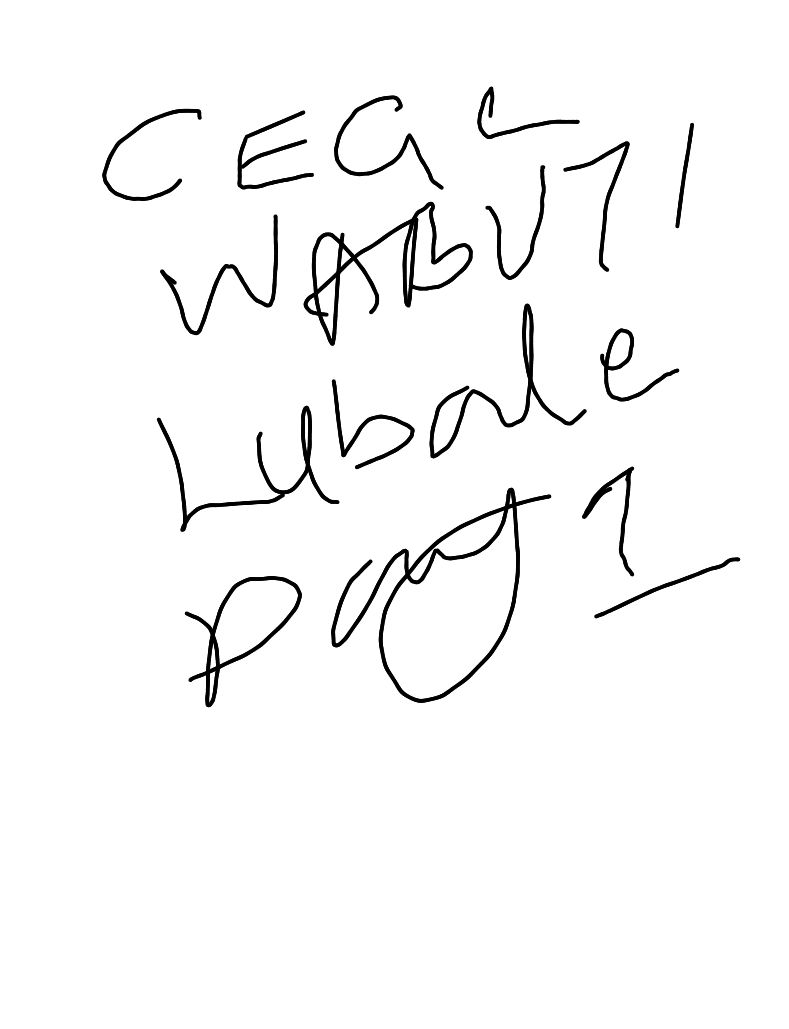 CEGL
WABUTI
Lubale
pay 1